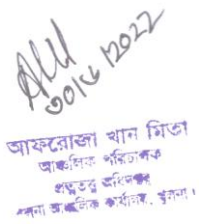 ৩০/৬/2022
আফরোজা খান মিতা
আঞ্চলিক পরিচালক
প্রত্নতত্ত্ব অধিদপ্তর
খুলনা আঞ্চলিক কার্যালয়, খুলনা।